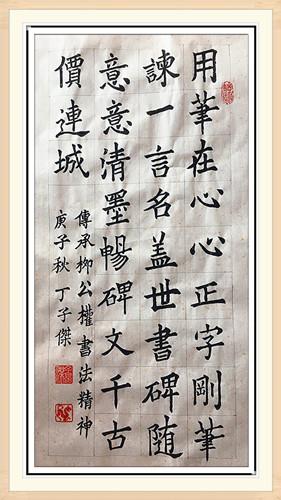 用筆在心心正字剛筆
諫一言名盖世書碑随
意意清墨暢碑文千古
價連城
傳承柳公權書法精神
庚子秋丁子傑